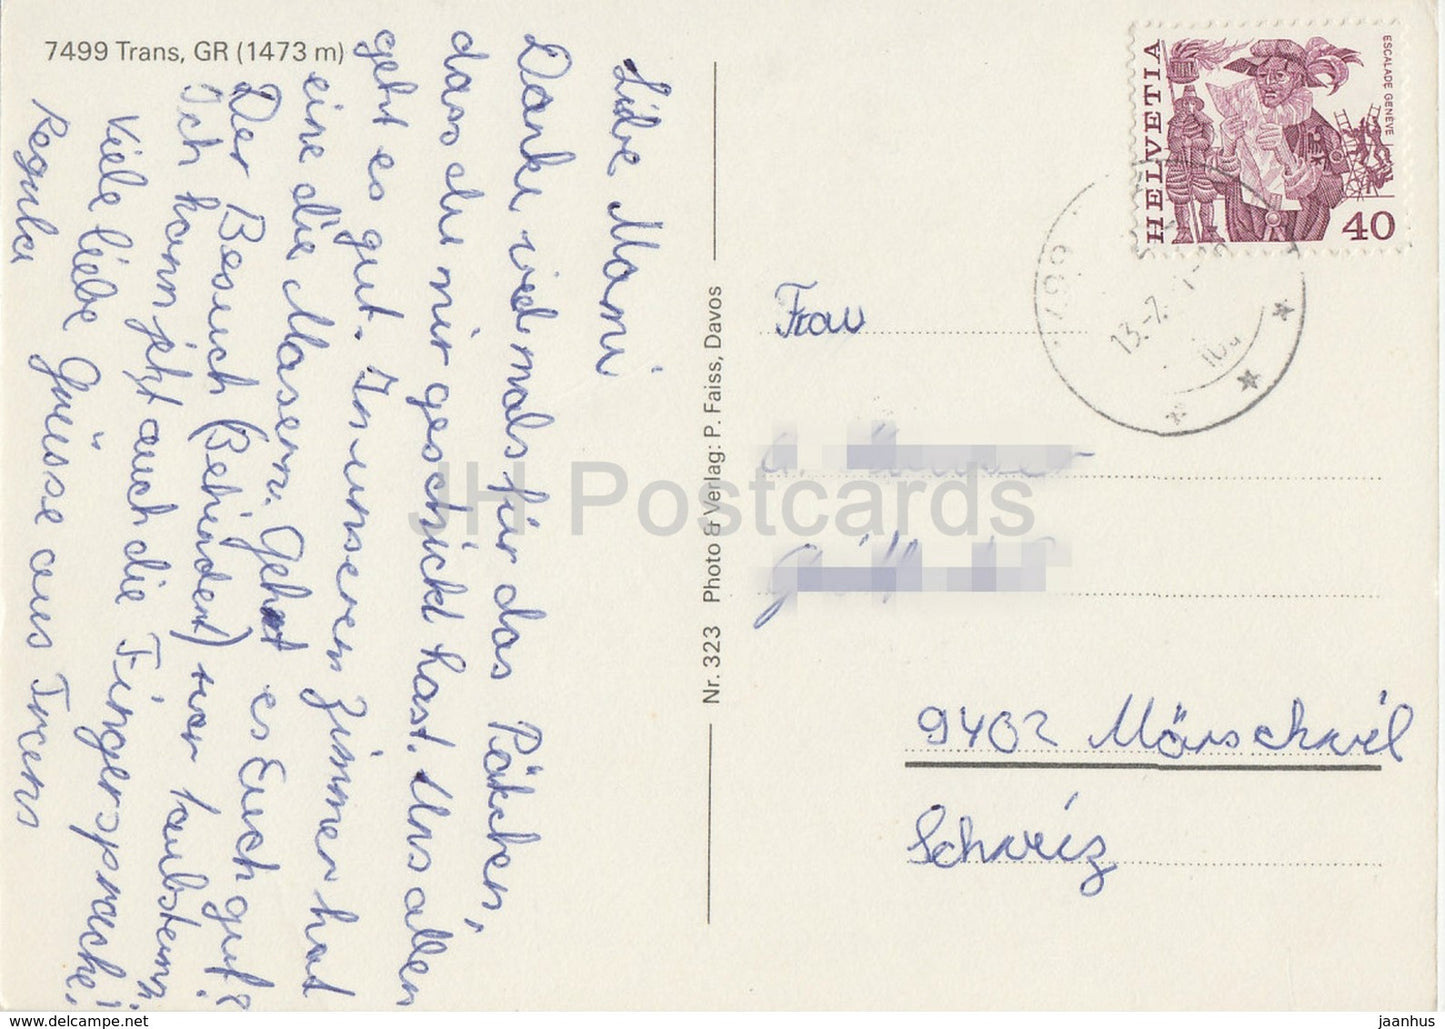 7499 Trans, GR (1473 m)
Liebe Mami
Danke vielmals für das Päckchen,
dass du mir geschickt hast. Uns allen
geht es gut. In unserem Zimmer hat
eine die Masern. Geht es Euch gut?
Der Besuch (Behindert) war taubstumm
Ich kann jetzt auch die Fingersprache!
Viele liebe Grüsse aus Trans
Regula
Nr. 323 Photo & Verlag: P. Faiss, Davos
HELVETIA
ESCALADE GENÈVE
40
7499
13.-7.
Frau
9402 Mörschwil
Schweiz
JH Postcards
www.delcampe.net
jaanhus